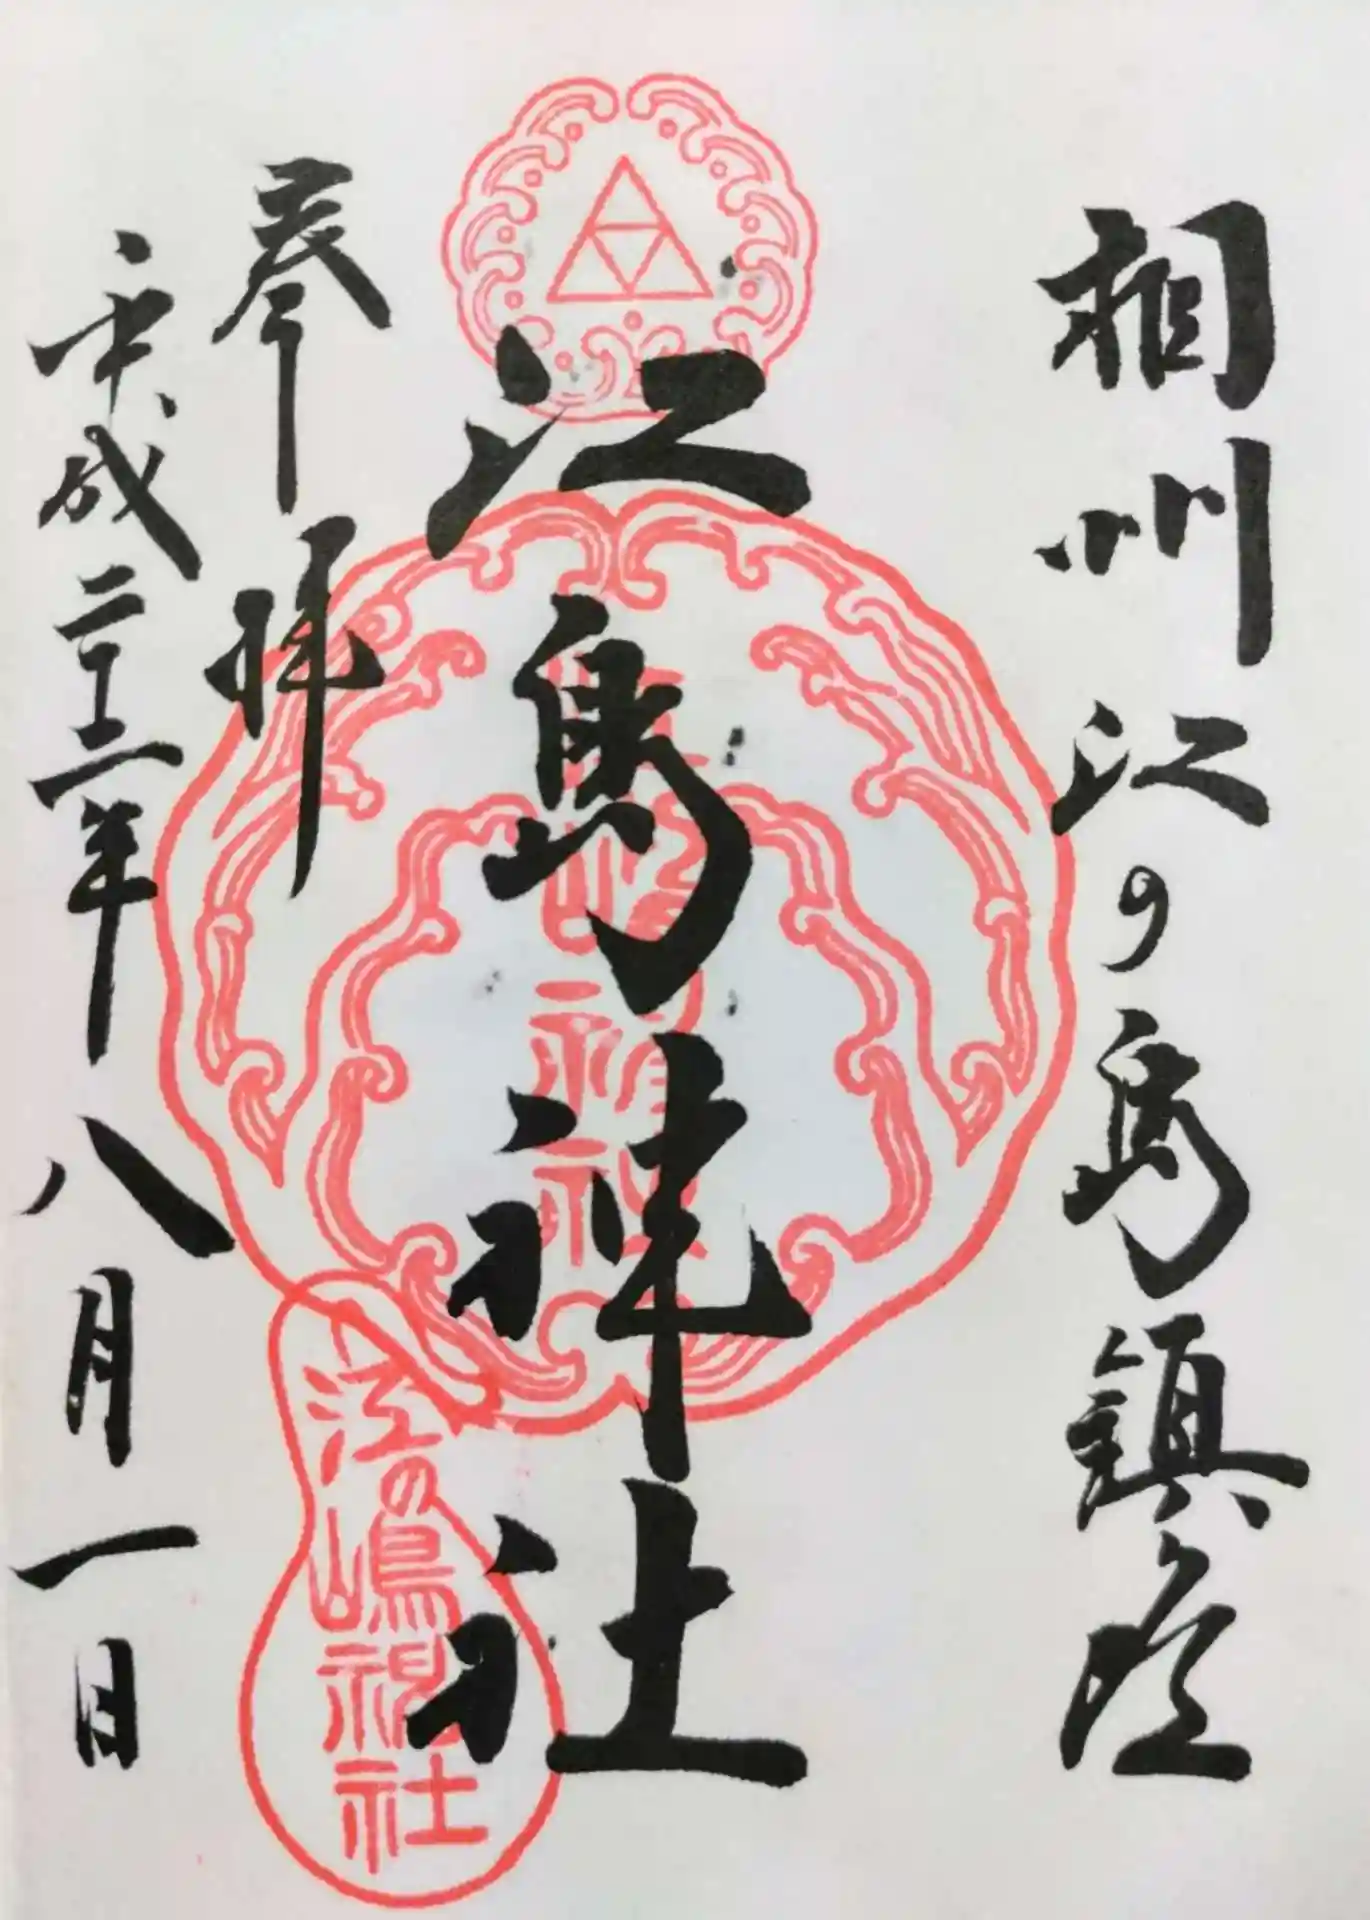 相州江の島鎮座
江島神社
奉拝
平成二十三年八月一日
江の嶋神社